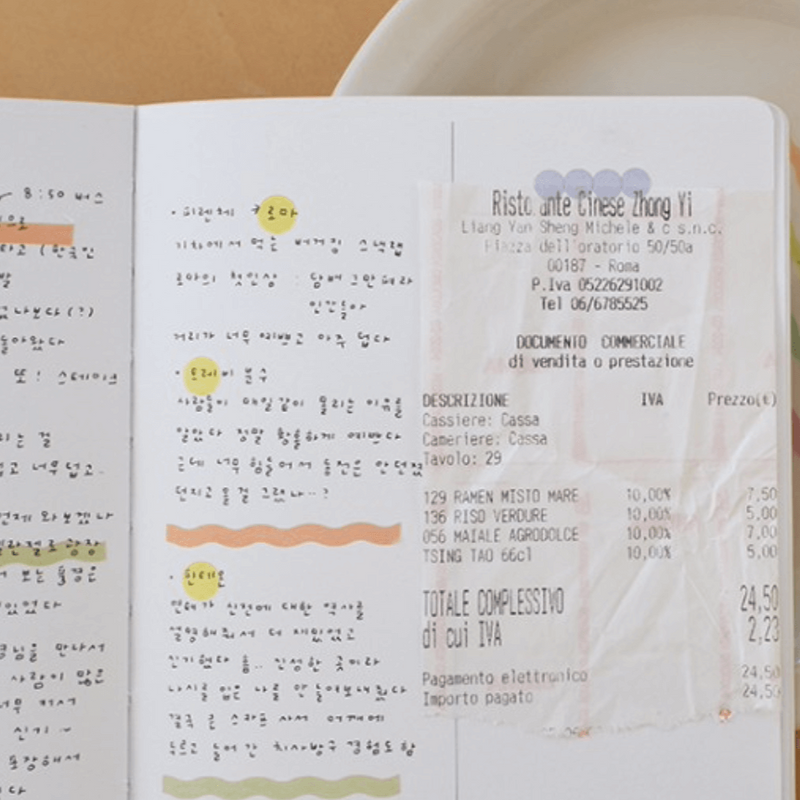 8:50 버스
으로
타고 (한국인
발
갔나보다 (?)
돌아왔다
또! 스테이크
리는 걸
고 너무 덥고..
언제 와보겠나
란젤로 광장
서 보는 풍경은
있었다
님을 만나서
사람이 많은
너무 커서
신기~
포장해서
다
· 피렌체 → 로마
기차에서 먹는 버거킹 스낵랩
로마의 첫인상 : 담배 그만 펴라
인간들아
거리가 너무 예쁘고 아주 덥다
· 트레비 분수
사람들이 매일같이 몰리는 이유를
알았다 정말 황홀하게 예쁘다
근데 너무 힘들어서 동전은 안 던졌
던지고 올 걸 그랬나..?
· 판테온
언니가 신전에 대한 역사를
설명해줘서 더 재밌었고
신기했다 흠.. 신성한 곳이라
나시를 입은 나를 안 들여보내줬다
결국 큰 스카프 사서 어깨에
두르고 들어간 치사빵꾸 경험도 함
Ristorante Cinese Zhong Yi
Liang Yan Sheng Michele & c s.n.c.
Piazza dell'oratorio 50/50a
00187 - Roma
P.Iva 05226291002
Tel 06/6785525
DOCUMENTO COMMERCIALE
di vendita o prestazione
DESCRIZIONE IVA Prezzo(€)
Cassiere: Cassa
Cameriere: Cassa
Tavolo: 29
129 RAMEN MISTO MARE 10,00% 7,50
136 RISO VERDURE 10,00% 5,00
056 MAIALE AGRODOLCE 10,00% 7,00
TSING TAO 66cl 10,00% 5,00
TOTALE COMPLESSIVO 24,50
di cui IVA 2,23
Pagamento elettronico 24,50
Importo pagato 24,50